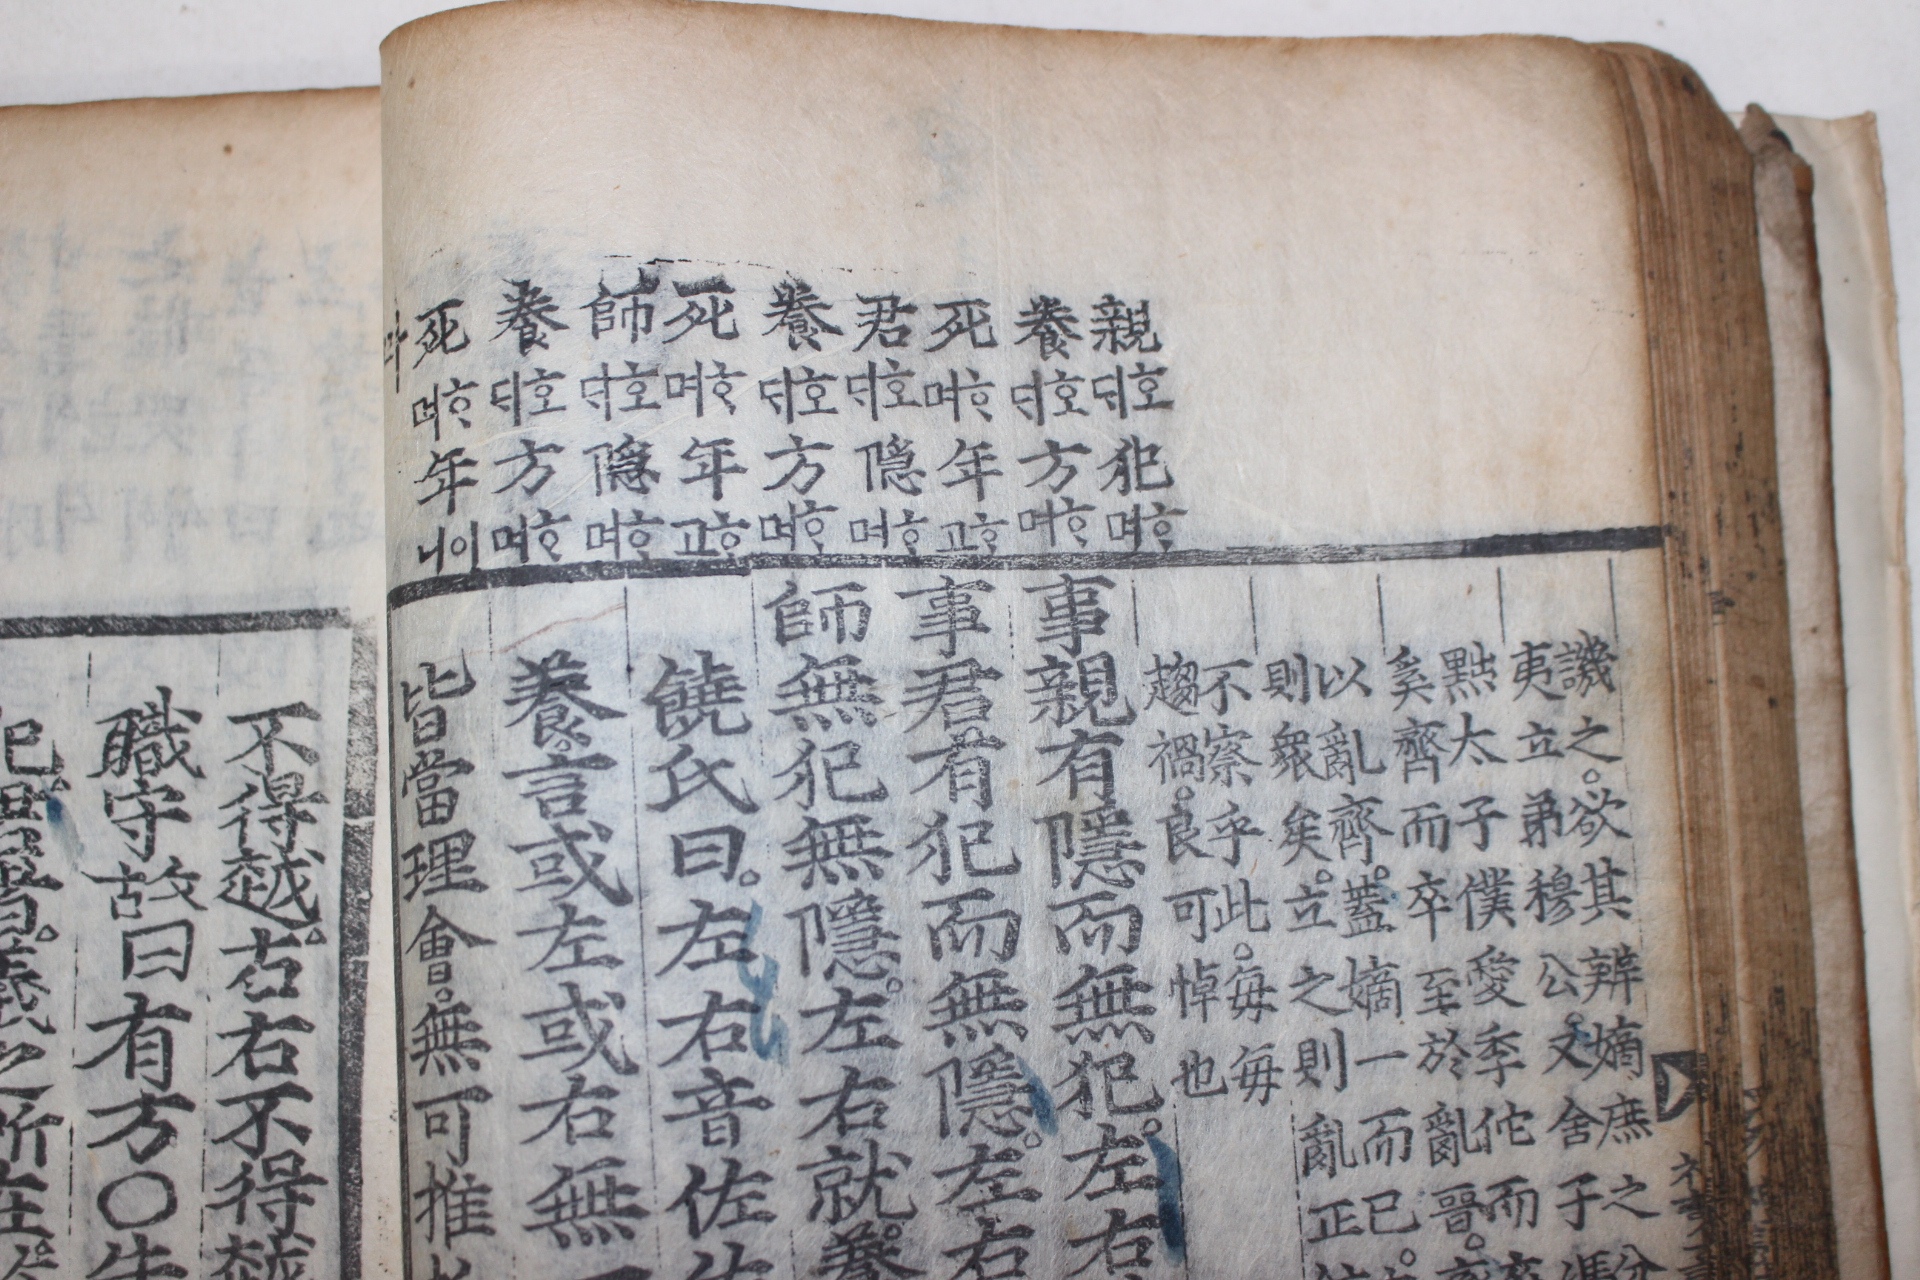 親호ᄃᆡ犯ᄒᆞ며
養호ᄃᆡ方ᄒᆞ며
死ᄒᆞ며年ᄒᆞ고
君호ᄃᆡ隠ᄒᆞ며
養호ᄃᆡ方ᄒᆞ며
死ᄒᆞ며年ᄒᆞ고
師호ᄃᆡ隠ᄒᆞ며
養호ᄃᆡ方ᄒᆞ며
死ᄒᆞ며年이니
라
譏之。欲其辨嫡庶之分
夷立弟穆公。又舍子馮
點太子僕愛季佗而
奚齊而卒至於亂晉。卒
以亂齊。蓋嫡一而已。
則衆矣。立之則亂正
不察乎此。每每
趨禍。良可悼也
事親有隱而無犯。左右
事君有犯而無隱。左右
師無犯無隱。左右就養。
饒氏曰。左右音佐佑
養。言或左或右無
皆當理會。無可推
不得越右。右不得越
職守故曰有方○朱
義之所在